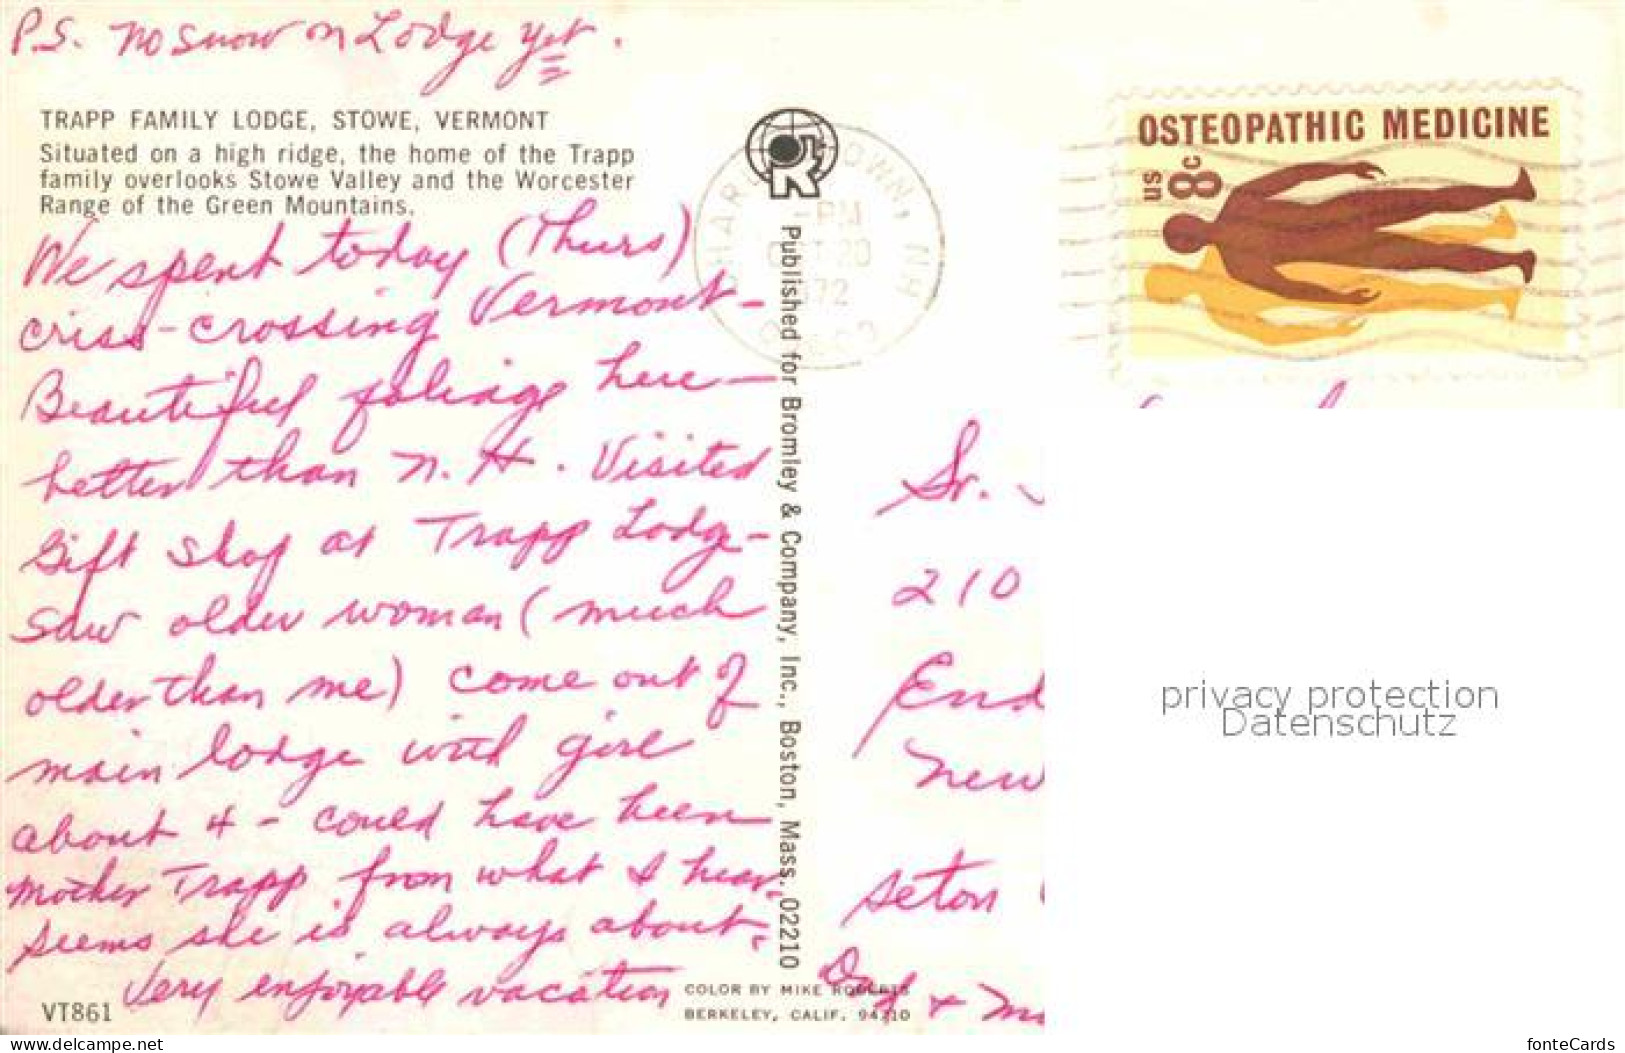 P.S. No snow on Lodge yet.
TRAPP FAMILY LODGE, STOWE, VERMONT
Situated on a high ridge, the home of the Trapp
family overlooks Stowe Valley and the Worcester
Range of the Green Mountains.
We spent today (Thurs)
criss-crossing Vermont -
Beautiful foliage here -
better than N.H. Visited
Gift Shop at Trapp Lodge -
Saw older woman (much
older than me) come out of
main lodge with girl
about 4 - could have been
Mother Trapp from what I hear.
Seems she is always about.
Very enjoyable vacation
VT861
Published for Bromley & Company, Inc., Boston, Mass. 02210
COLOR BY MIKE ROBERTS
BERKELEY, CALIF. 94710
PM
20
72
OWN, NH
OSTEOPATHIC MEDICINE
US 8c
Sr.
210
End
New
Seton
Dad + M
privacy protection
Datenschutz
www.delcampe.net
fonteCards